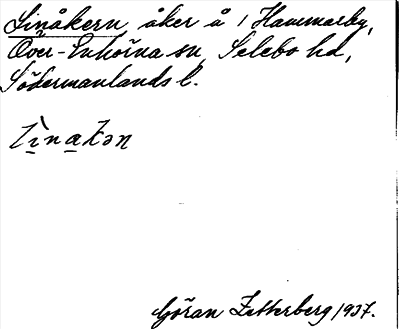 Linåkern åker å 1 Hammarby,
Över-Enhörna sn, Selebo hd,
Södermanlands l.
lìnakən
Göran Zetterberg 1937.